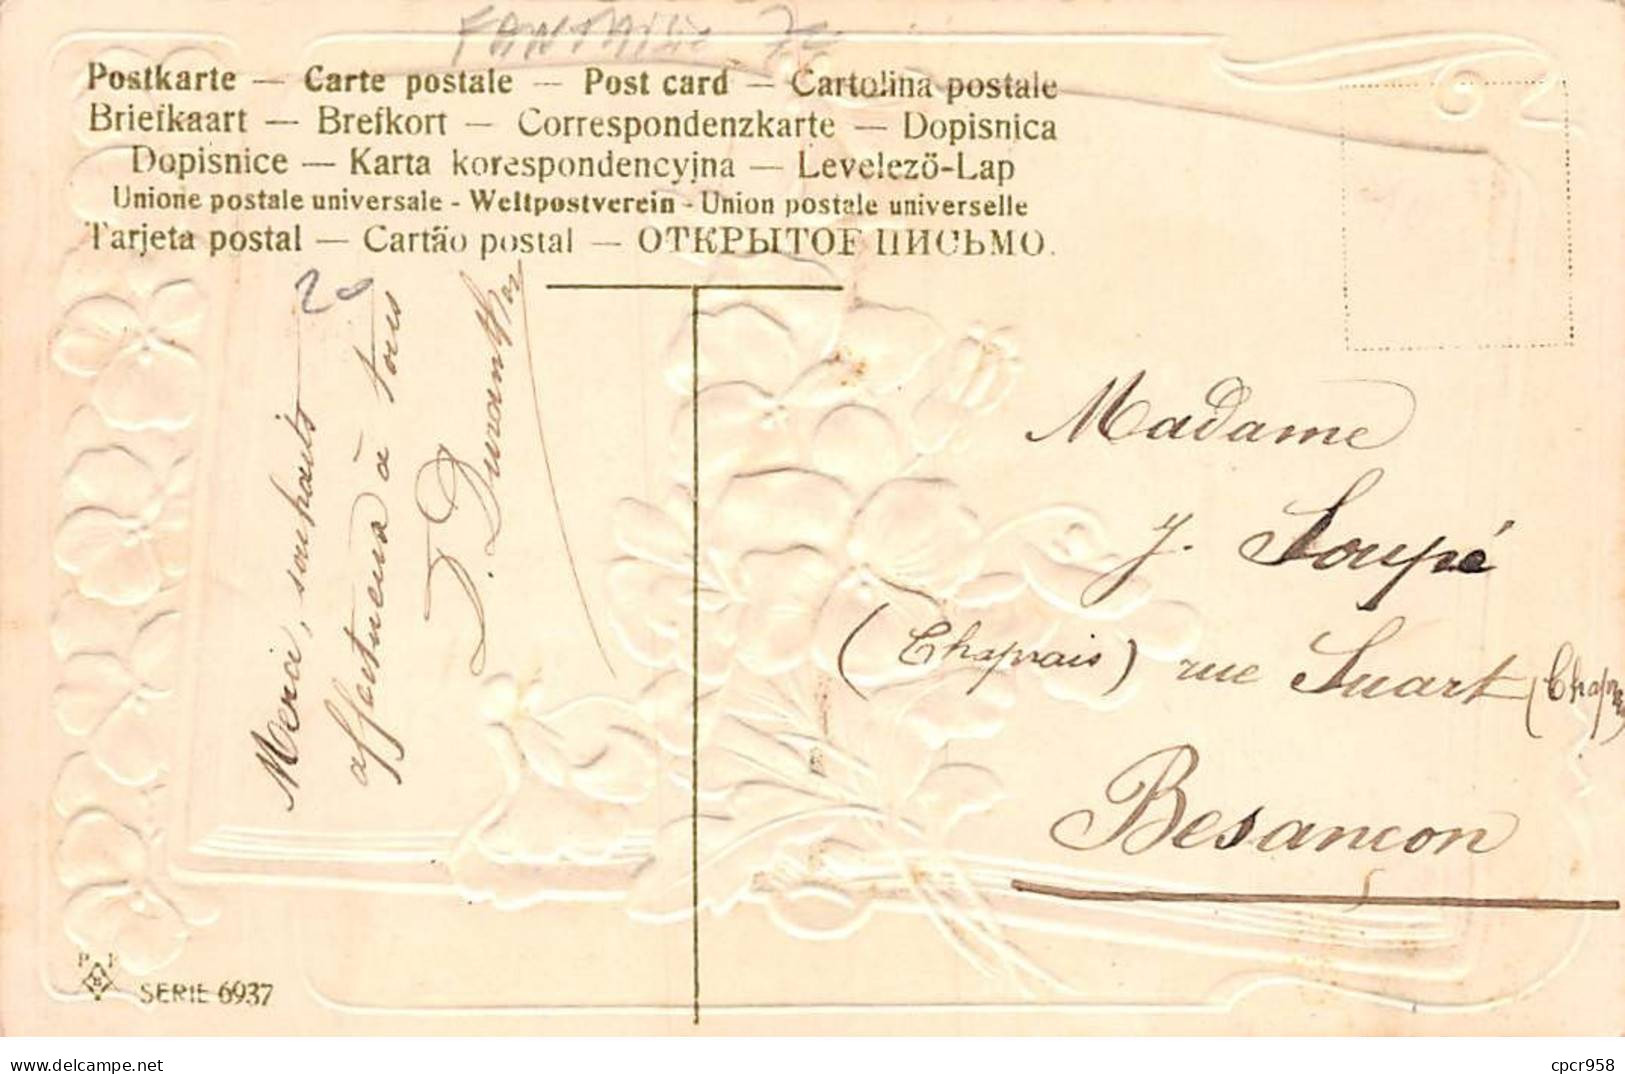 FANTAISIE
Postkarte — Carte postale — Post card — Cartolina postale
Briefkaart — Brefkort — Correspondenzkarte — Dopisnica
Dopisnice — Karta korespondencyjna — Levelező-Lap
Unione postale universale - Weltpostverein - Union postale universelle
Tarjeta postal — Cartão postal — ОТКРЫТОЕ ПИСЬМО.
20
Merci, souhaits
affectueux à tous
Madame
J. Soupé
(Chaprais) rue Suart (Chaprais
Besançon
P F B
SERIE 6937
delcampe.net
cpcr958